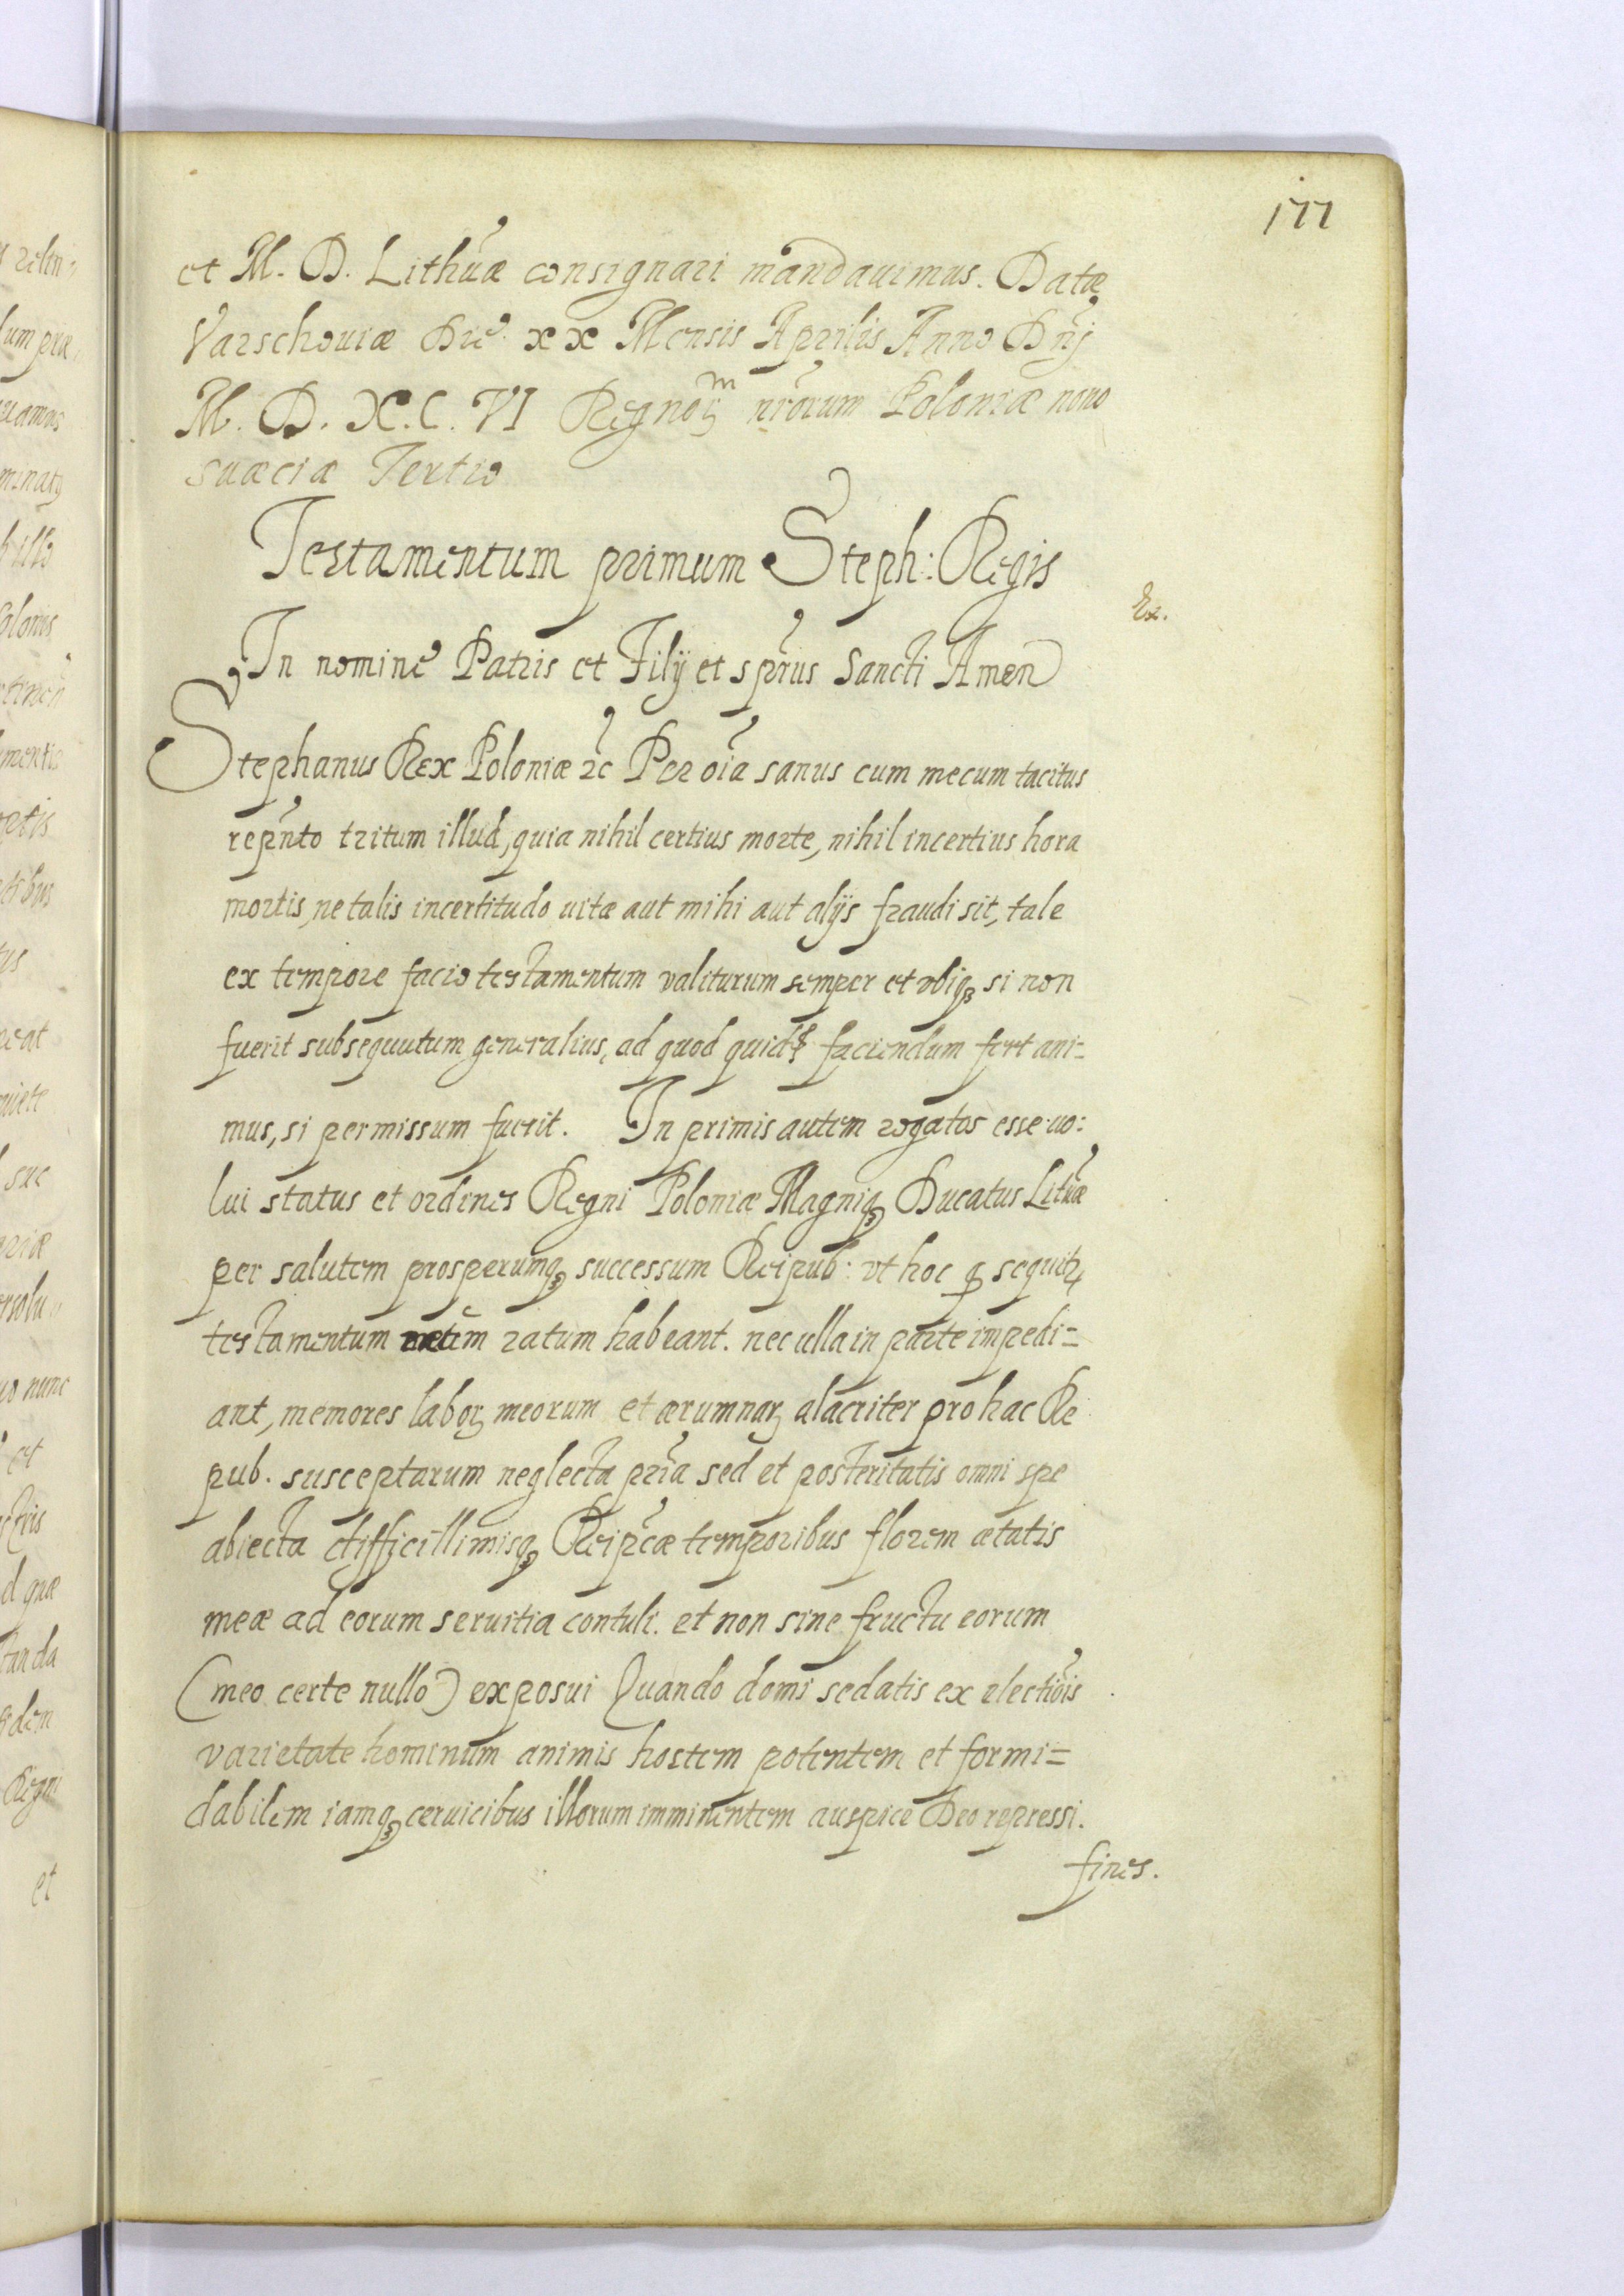 177
et M. D. Lithũæ consignari mandauimus. Datæ
Varschouiæ Die xx Mensis Aprilis Anno Dñj
M. D. X.C. VI Regnoꝝ nr̃orum Poloniæ nono
suæciæ Tertio
Testamentum primum Steph: Regis
Ex.
In nomine Patris et Filij et sp̃rus Sancti Amen
Stephanus Rex Poloniæ ⁊c̃ Per oĩa sanus cum mecum tacitus
rep̃nto tritum illud, quia nihil certius morte, nihil incertius hora
mortis, ne talis incertitudo uitæ aut mihi aut alijs fraudi sit, tale
ex tempore facio testamentum valiturum semper et vbiqꝫ si non
fuerit subsequutum generalius, ad quod faciendum fert ani=
mus, si permissum fuerit. In primis autem rogatos esse uo:
lui status et ordines Regni Poloniæ Magniqꝫ Ducatus Litũæ
per salutem prosperumqꝫ successum Reipub: vt hoc ꝙ sequitꝛ
testamentum ratum habeant. nec ulla in parte impedi=
ant, memores laboꝝ meorum et ærumnaꝝ alacriter pro hac Re
pub. susceptarum neglecta pr̃ia sed et posteritatis omni spe
abiecta difficillimisqꝫ Reip̃cæ temporibus florem ætatis
meæ ad eorum seruitia contuli. et non sine fructu eorum
(meo certe nullo) exposui Quando domi sedatis ex electiõis
varietate hominum animis hostem potentem et formi=
dabilem iamqꝫ ceruicibus illorum imminentem auspice Deo repressi.
fines.